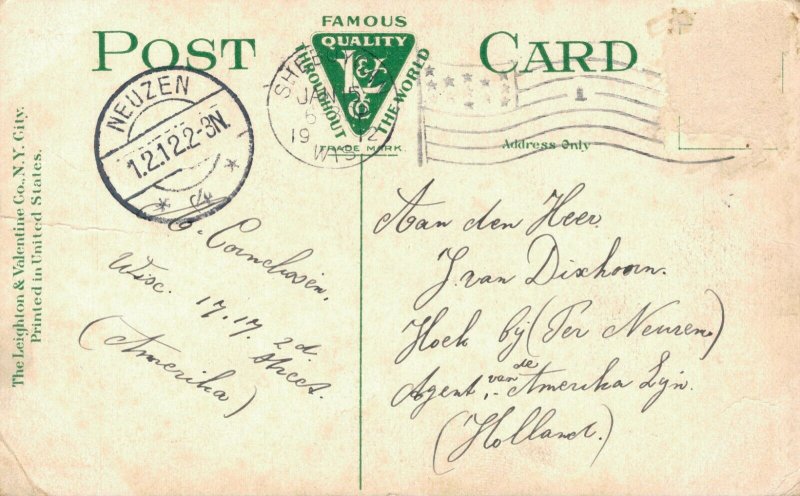 POST CARD
FAMOUS
QUALITY
L&V Co
THROUGHOUT THE WORLD
TRADE MARK
Address Only
The Leighton & Valentine Co., N.Y. City.
Printed in United States.
NEUZEN
1.2.12.2-3N.
JAN 5
19 12
WIS
1
Cornelissen,
Wisc. 17,17. 2d.
street.
(Amerika)
Aan den Heer
J. van Dixhoorn.
Hoek bij (Ter Neuzen)
Agent, van de Amerika Lijn.
(Holland.)